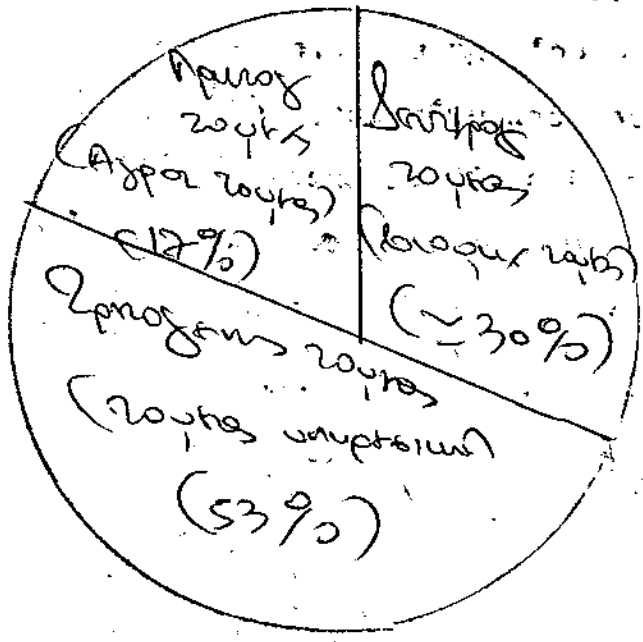 Πρωτογ
τομέας
(Αγροτ τομέας)
(17%)
Δευτερογ
τομέας
(βιομηχ τομέας)
(≃30%)
Τριτογενής τομέας
(τομέας υπηρεσιών)
(53%)